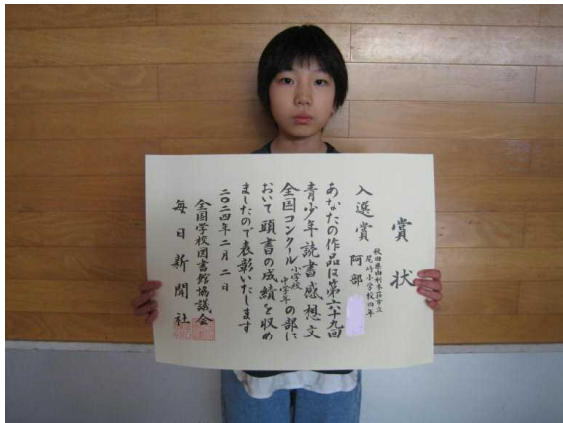 賞状
秋田県由利本荘市立
尾崎小学校四年
入選賞 阿部
あなたの作品は第六十九回
青少年読書感想文
全国コンクール小学校中学年の部に
おいて頭書の成績を収め
ましたので表彰いたします
二〇二四年二月二日
全国学校図書館協議会
毎日新聞社